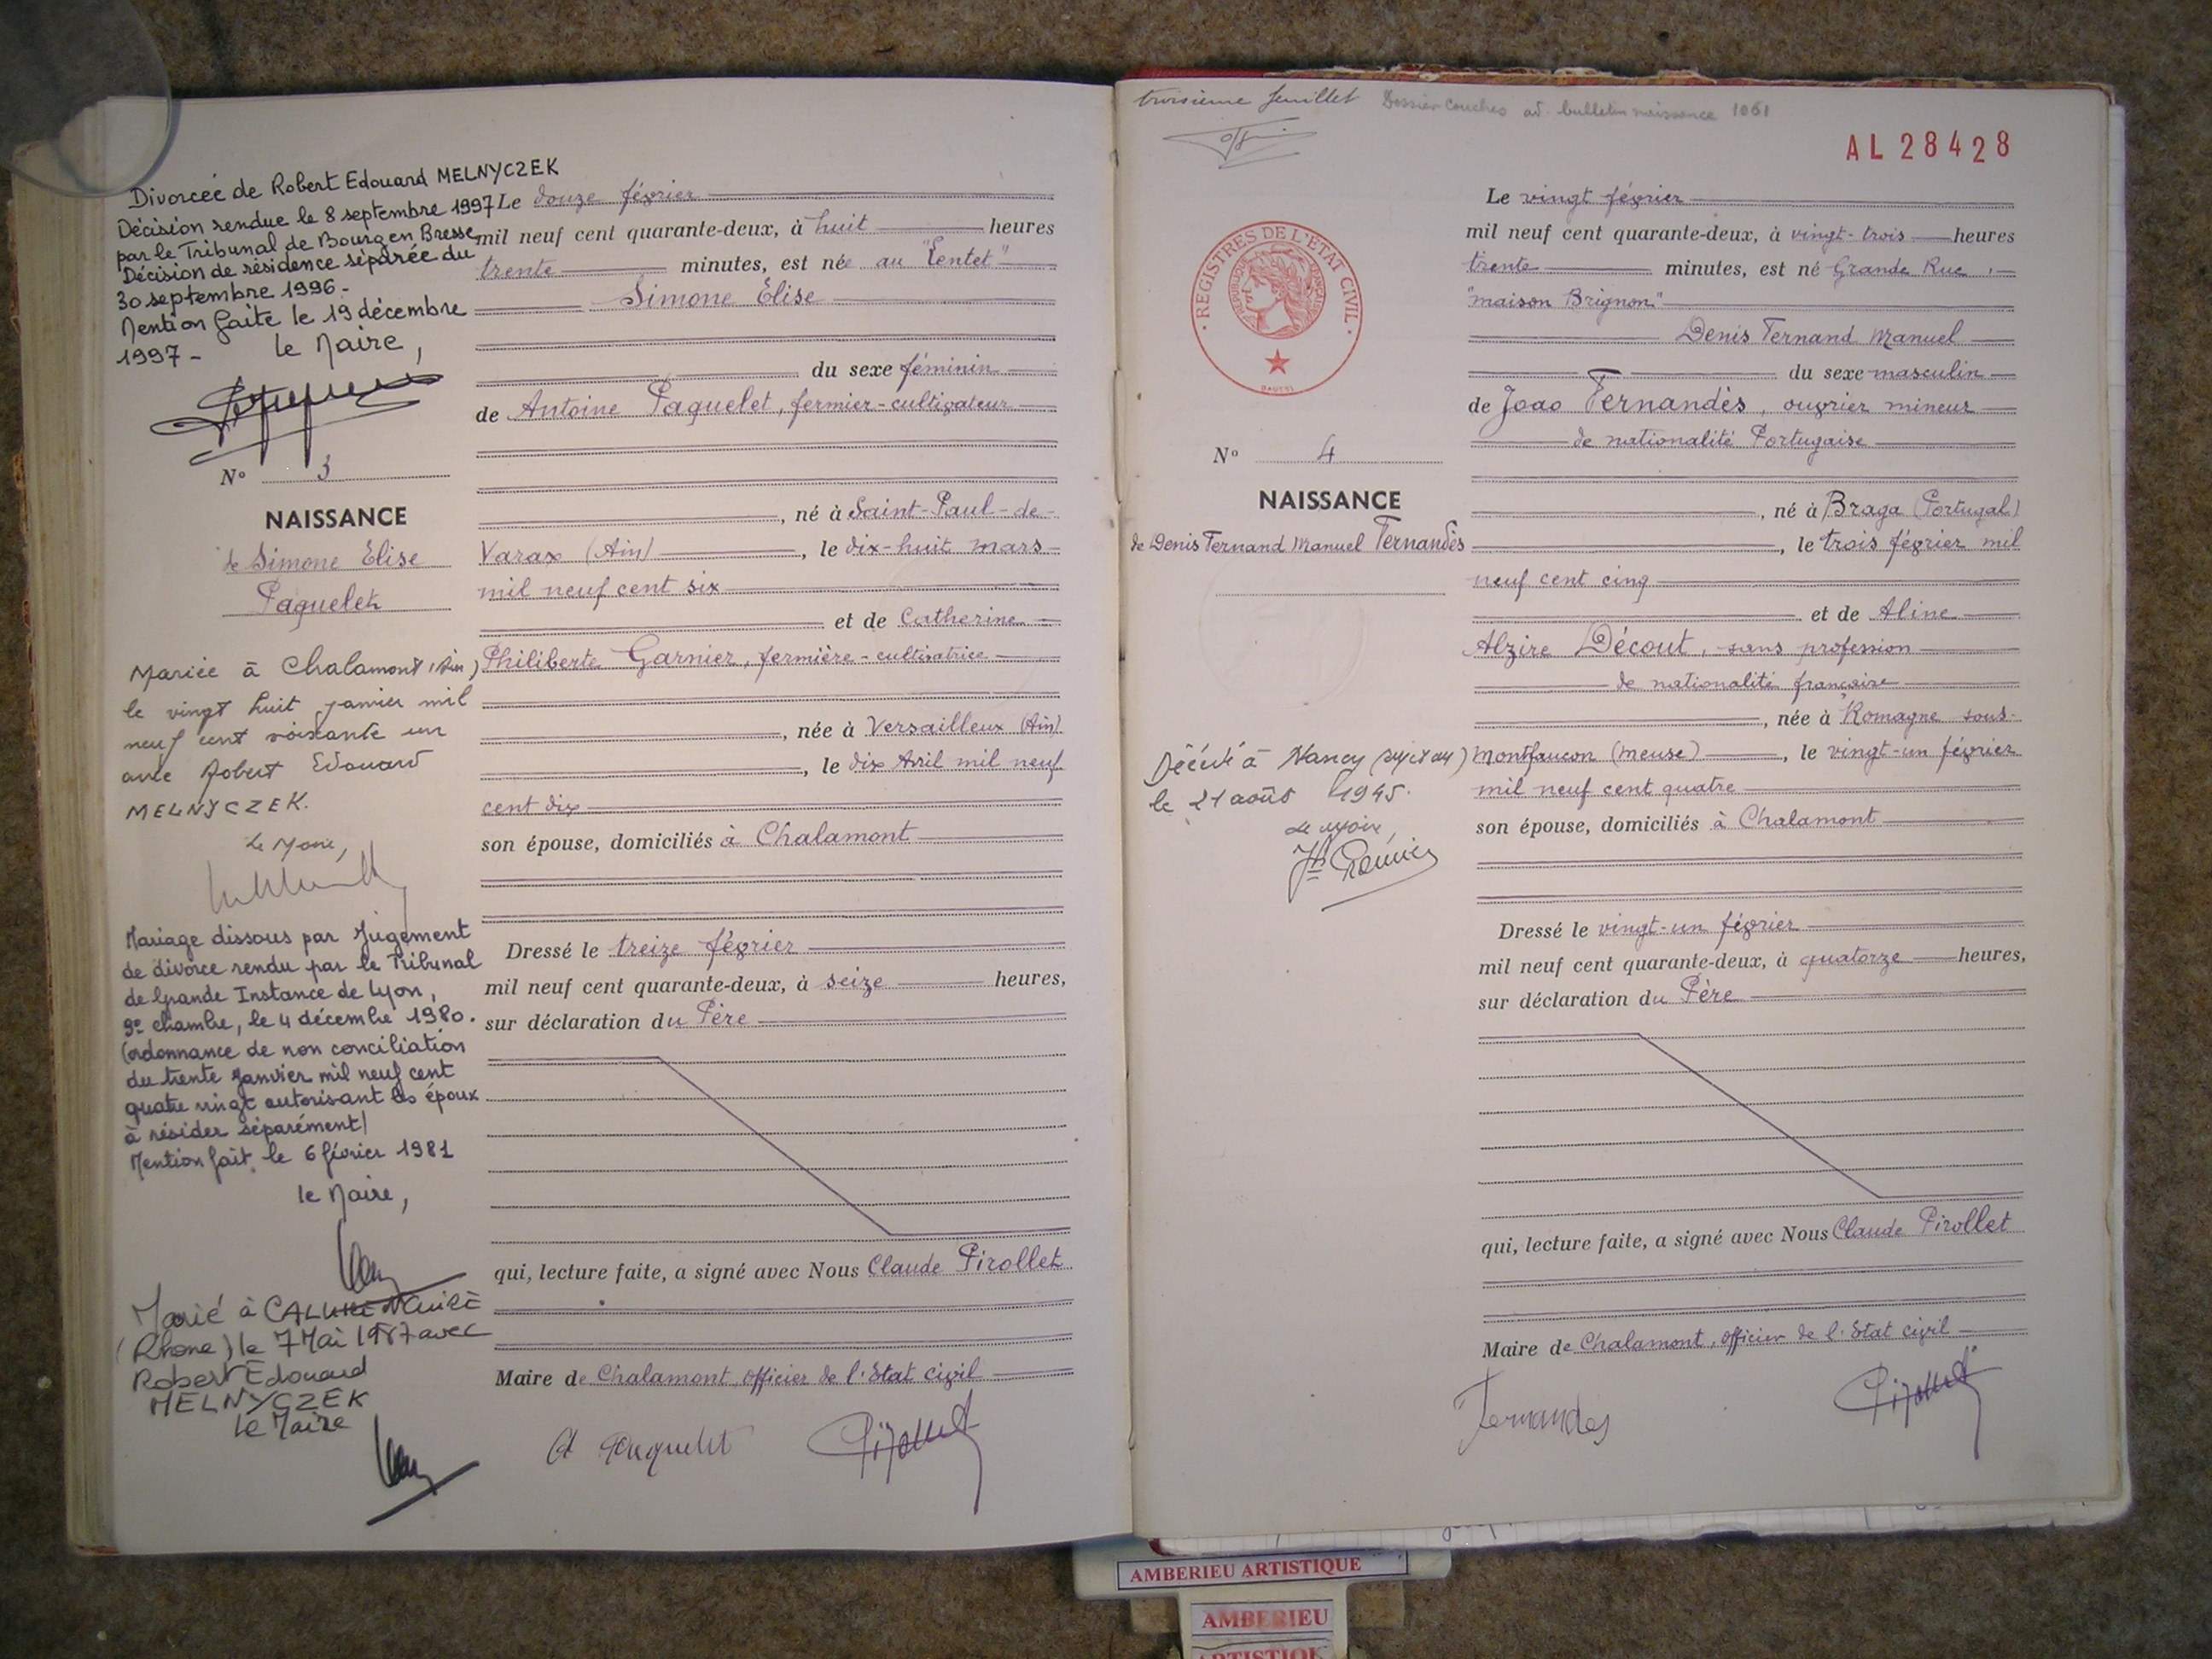 Divorcée de Robert Edouard MELNYCZEK
Décision rendue le 8 septembre 1997
par le Tribunal de Bourg en Bresse
Décision de résidence séparée du
30 septembre 1996.-
Mention faite le 19 décembre
1997 -
le Maire,
N° 3
NAISSANCE
de Simone Elise
Paquelet
Mariée à Chalamont (Ain)
le vingt huit janvier mil
neuf cent soixante un
avec Robert Edouard
MELNYCZEK.
Le Maire,
Mariage dissous par Jugement
de divorce rendu par le Tribunal
de Grande Instance de Lyon,
9e chambre, le 4 décembre 1980.
(ordonnance de non conciliation
du trente Janvier mil neuf cent
quatre vingt autorisant les époux
à résider séparément)
Mention fait le 6 février 1981
le Maire,
Marié à CALUIRE
(Rhone) le 7 Mai 1987 avec
Robert Edouard
MELNYCZEK
le Maire
Le douze février
mil neuf cent quarante-deux, à huit heures
trente minutes, est née au "Tentet"
Simone Elise
du sexe féminin
de Antoine Paquelet, fermier-cultivateur
, né à Saint-Paul-de-
Varax (Ain) , le dix-huit mars
mil neuf cent six
et de Catherine
Philiberte Garnier, fermière-cultivatrice
, née à Versailleux (Ain)
, le dix Avril mil neuf
cent dix
son épouse, domiciliés à Chalamont
Dressé le treize février
mil neuf cent quarante-deux, à seize heures,
sur déclaration du Père
qui, lecture faite, a signé avec Nous Claude Pirollet
Maire de Chalamont, officier de l'Etat civil
A Paquelet
troisième feuillet Dossier Couches av. bulletin naissance 1061
AL 28428
REGISTRES DE L'ÉTAT CIVIL
RÉPUBLIQUE FRANÇAISE
N° 4
NAISSANCE
de Denis Fernand Manuel Fernandès
Décédé à Nancy
le 21 août 1945.
Le Maire,
Le vingt février
mil neuf cent quarante-deux, à vingt-trois heures
trente minutes, est né Grande Rue,
"maison Brignon"
Denis Fernand Manuel
du sexe masculin
de Joao Fernandès, ouvrier mineur
de nationalité Portugaise
, né à Braga (Portugal)
, le trois février mil
neuf cent cinq
et de Aline
Alzire Décout, sans profession
de nationalité française
, née à Romagne sous-
Montfaucon (Meuse) , le vingt-un février
mil neuf cent quatre
son épouse, domiciliés à Chalamont
Dressé le vingt-un février
mil neuf cent quarante-deux, à quatorze heures,
sur déclaration du Père
qui, lecture faite, a signé avec Nous Claude Pirollet
Maire de Chalamont, officier de l'Etat civil
Fernandes
AMBERIEU ARTISTIQUE
AMBERIEU
ARTISTIQUE